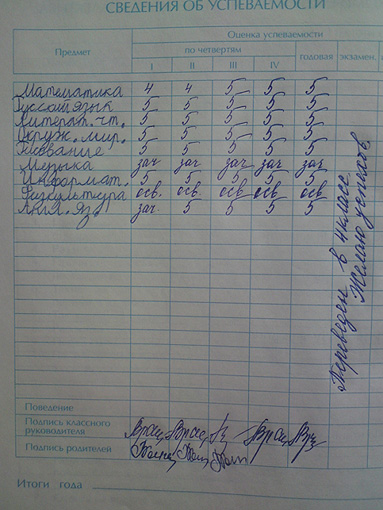 СВЕДЕНИЯ ОБ УСПЕВАЕМОСТИ
Предмет Оценка успеваемости
по четвертям годовая экзамен.
I II III IV
Математика 4 4 5 5 5
Русский язык 5 5 5 5 5
Литерат. чт. 5 5 5 5 5
Окруж. мир. 5 5 5 5 5
Рисование 5 5 5 5 5
Музыка зач зач зач зач зач
Информат. 5 5 5 5 5
Физкультура осв. осв осв осв осв
Англ. яз. зач. 5 5 5 5
Переведен в 4 класс.
Желаю успехов.
Поведение
Подпись классного
руководителя
Подпись родителей
Итоги года